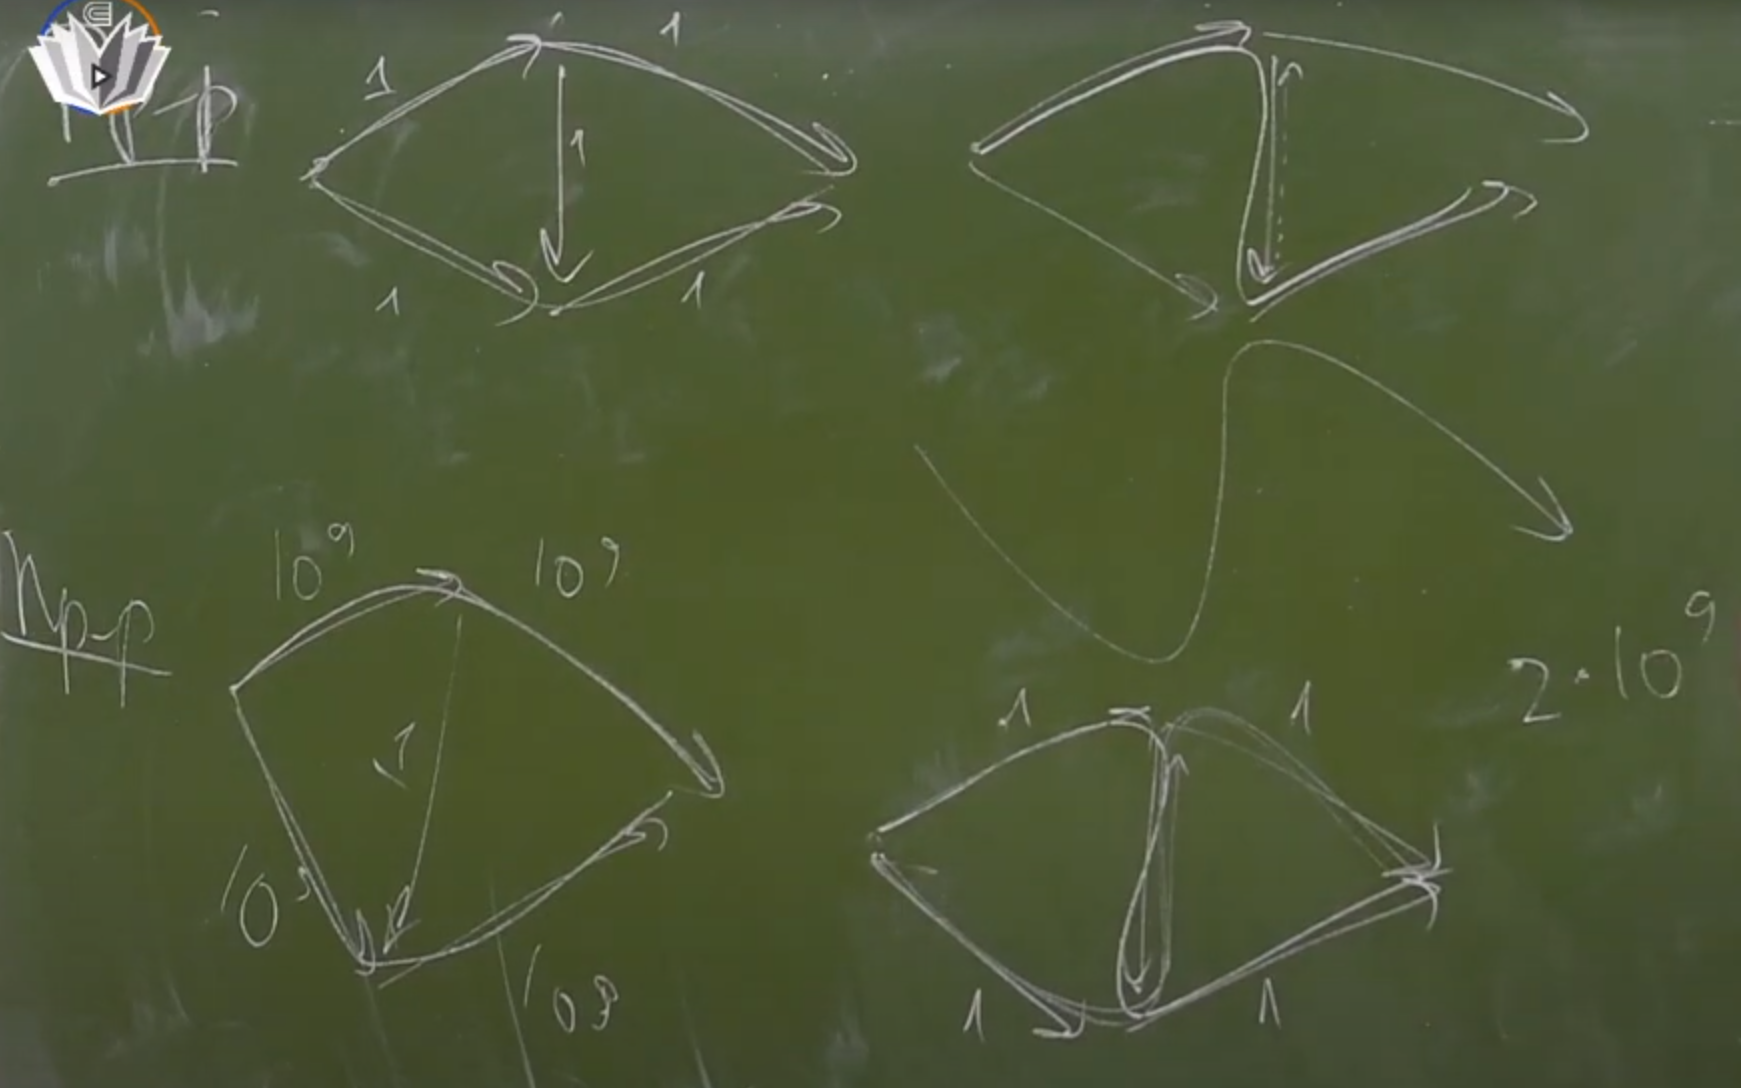 Пр-р
1 1
1
1 1
Пр-р
10⁹ 10⁹
1
10⁹ 10⁹
2·10⁹
1 1
1 1